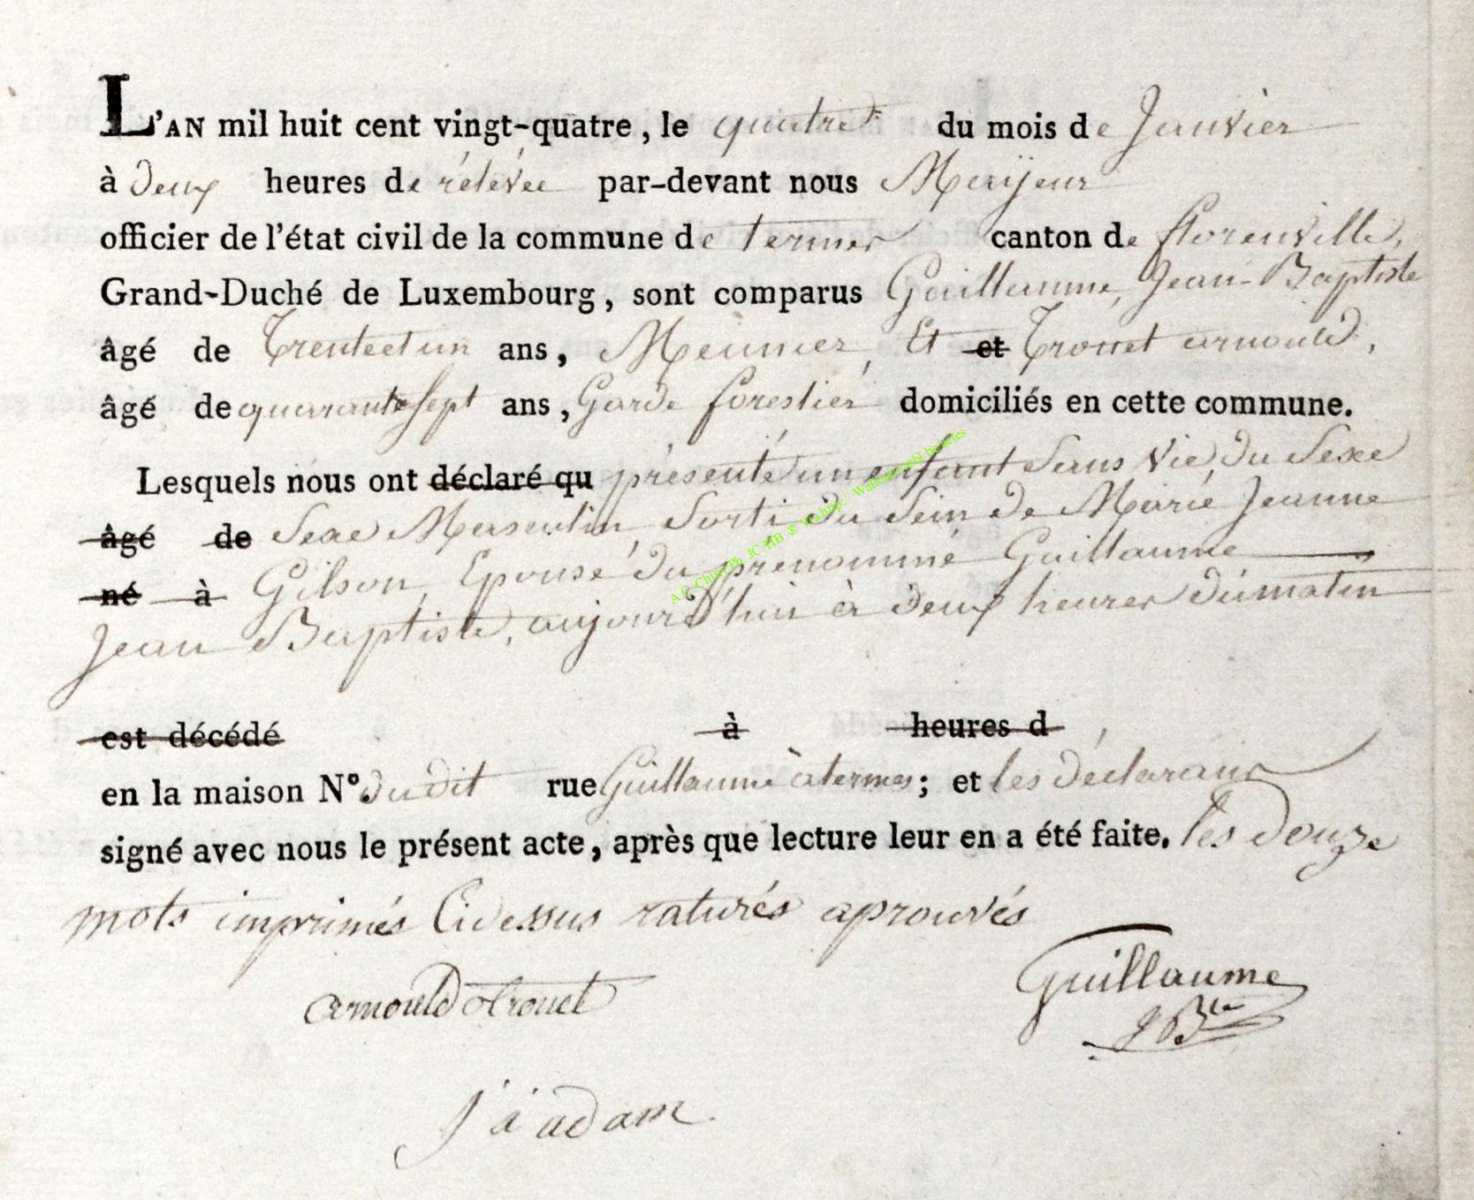 L'AN mil huit cent vingt-quatre, le quatre du mois de Janvier
à deux heures de rélévée par-devant nous Maÿeur
officier de l'état civil de la commune de termes canton de florenville,
Grand-Duché de Luxembourg, sont comparus Guillaume, Jean-Baptiste
âgé de Trente et un ans, Meunier, Et et Trouet arnould,
âgé de quarante sept ans, Garde forestier domiciliés en cette commune.
Lesquels nous ont déclaré qu présenté un enfant Sans Vie, du Sexe
âgé de Sexe Masculin, Sorti du Sein de Marie Jeanne
né à Gilson, Epouse du prénommé Guillaume
Jean Baptiste, aujourd'hui à deux heures du matin
est décédé à heures d
en la maison N° dudit rue Guillaume à termes; et les déclarans
signé avec nous le présent acte, après que lecture leur en a été faite. les douze
mots imprimés Cidessus raturés aprouvés
arnould trouet Guillaume
J Bte
J a adam